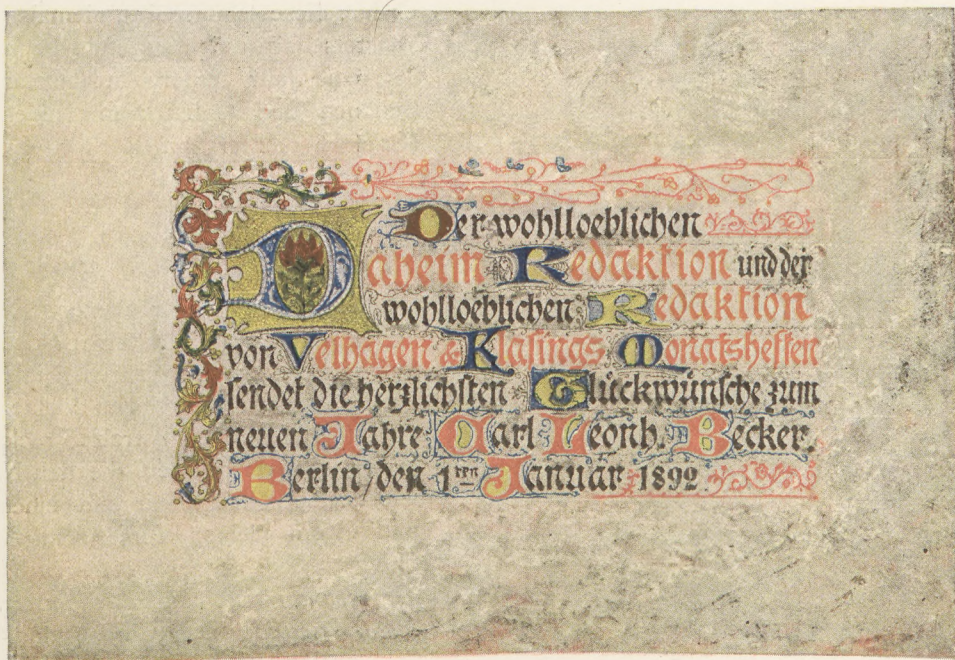 Der wohlloeblichen
Daheim Redaktion und der
wohlloeblichen Redaktion
von Velhagen & Klasings Monatsheften
sendet die herzlichsten Glückwünsche zum
neuen Jahre Carl Leonh. Becker.
Berlin, den 1ten Januar 1892.